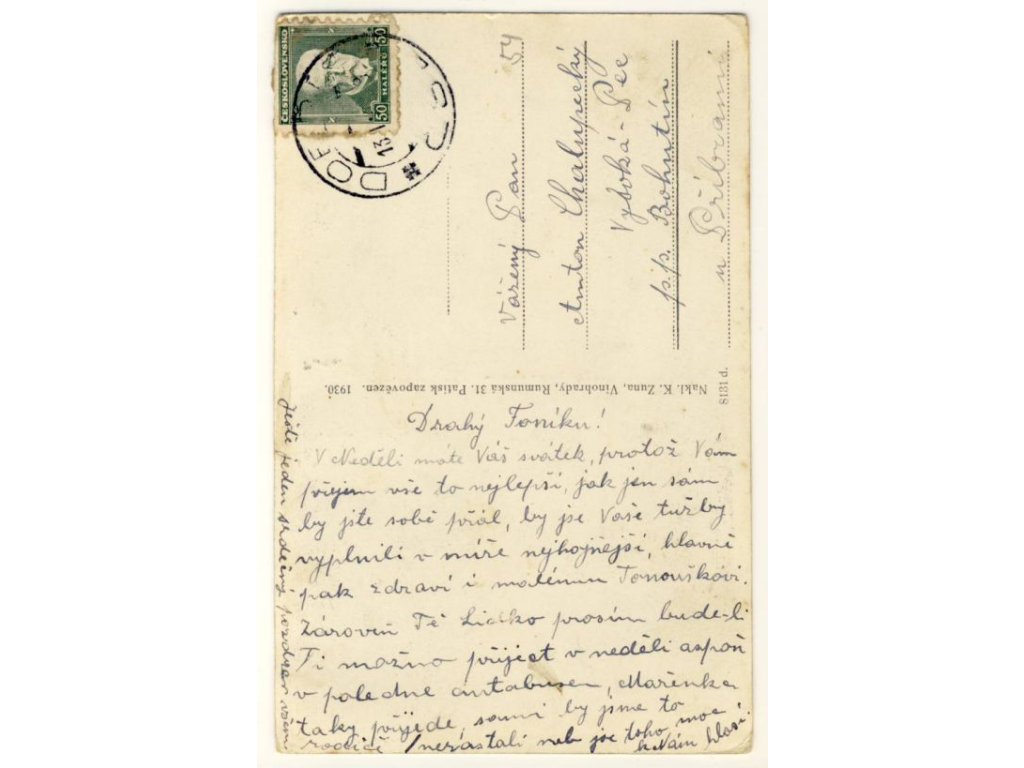 ČESKOSLOVENSKO
50 HALÉŘŮ 50
DO
13
54
Vážený Pan
Anton Chalupecký
Vysoká-Pec
p.p. Bohutín
u Příbrami
8131 d.
Nakl. K. Zuna, Vinohrady, Rumunská 31. Patisk zapovězen. 1930.
Drahý Toníku!
V Neděli máte Váš svátek, protož Vám
přejem vše to nejlepší, jak jen sám
by jste sobě přál, by jse Vaše tužby
vyplnili v míře nejhojnější, hlavně
pak zdraví i malému Tonouškovi.
Zároveň Tě Lidko prosím bude-li
Ti možno přijet v neděli aspoň
v poledne autobusem, Mařenka
taky přijede, sami by jsme to
nezůstali neb jse toho moc
k Nám hlásí.
Ještě jeden srdečný pozdrav všem
rodiče